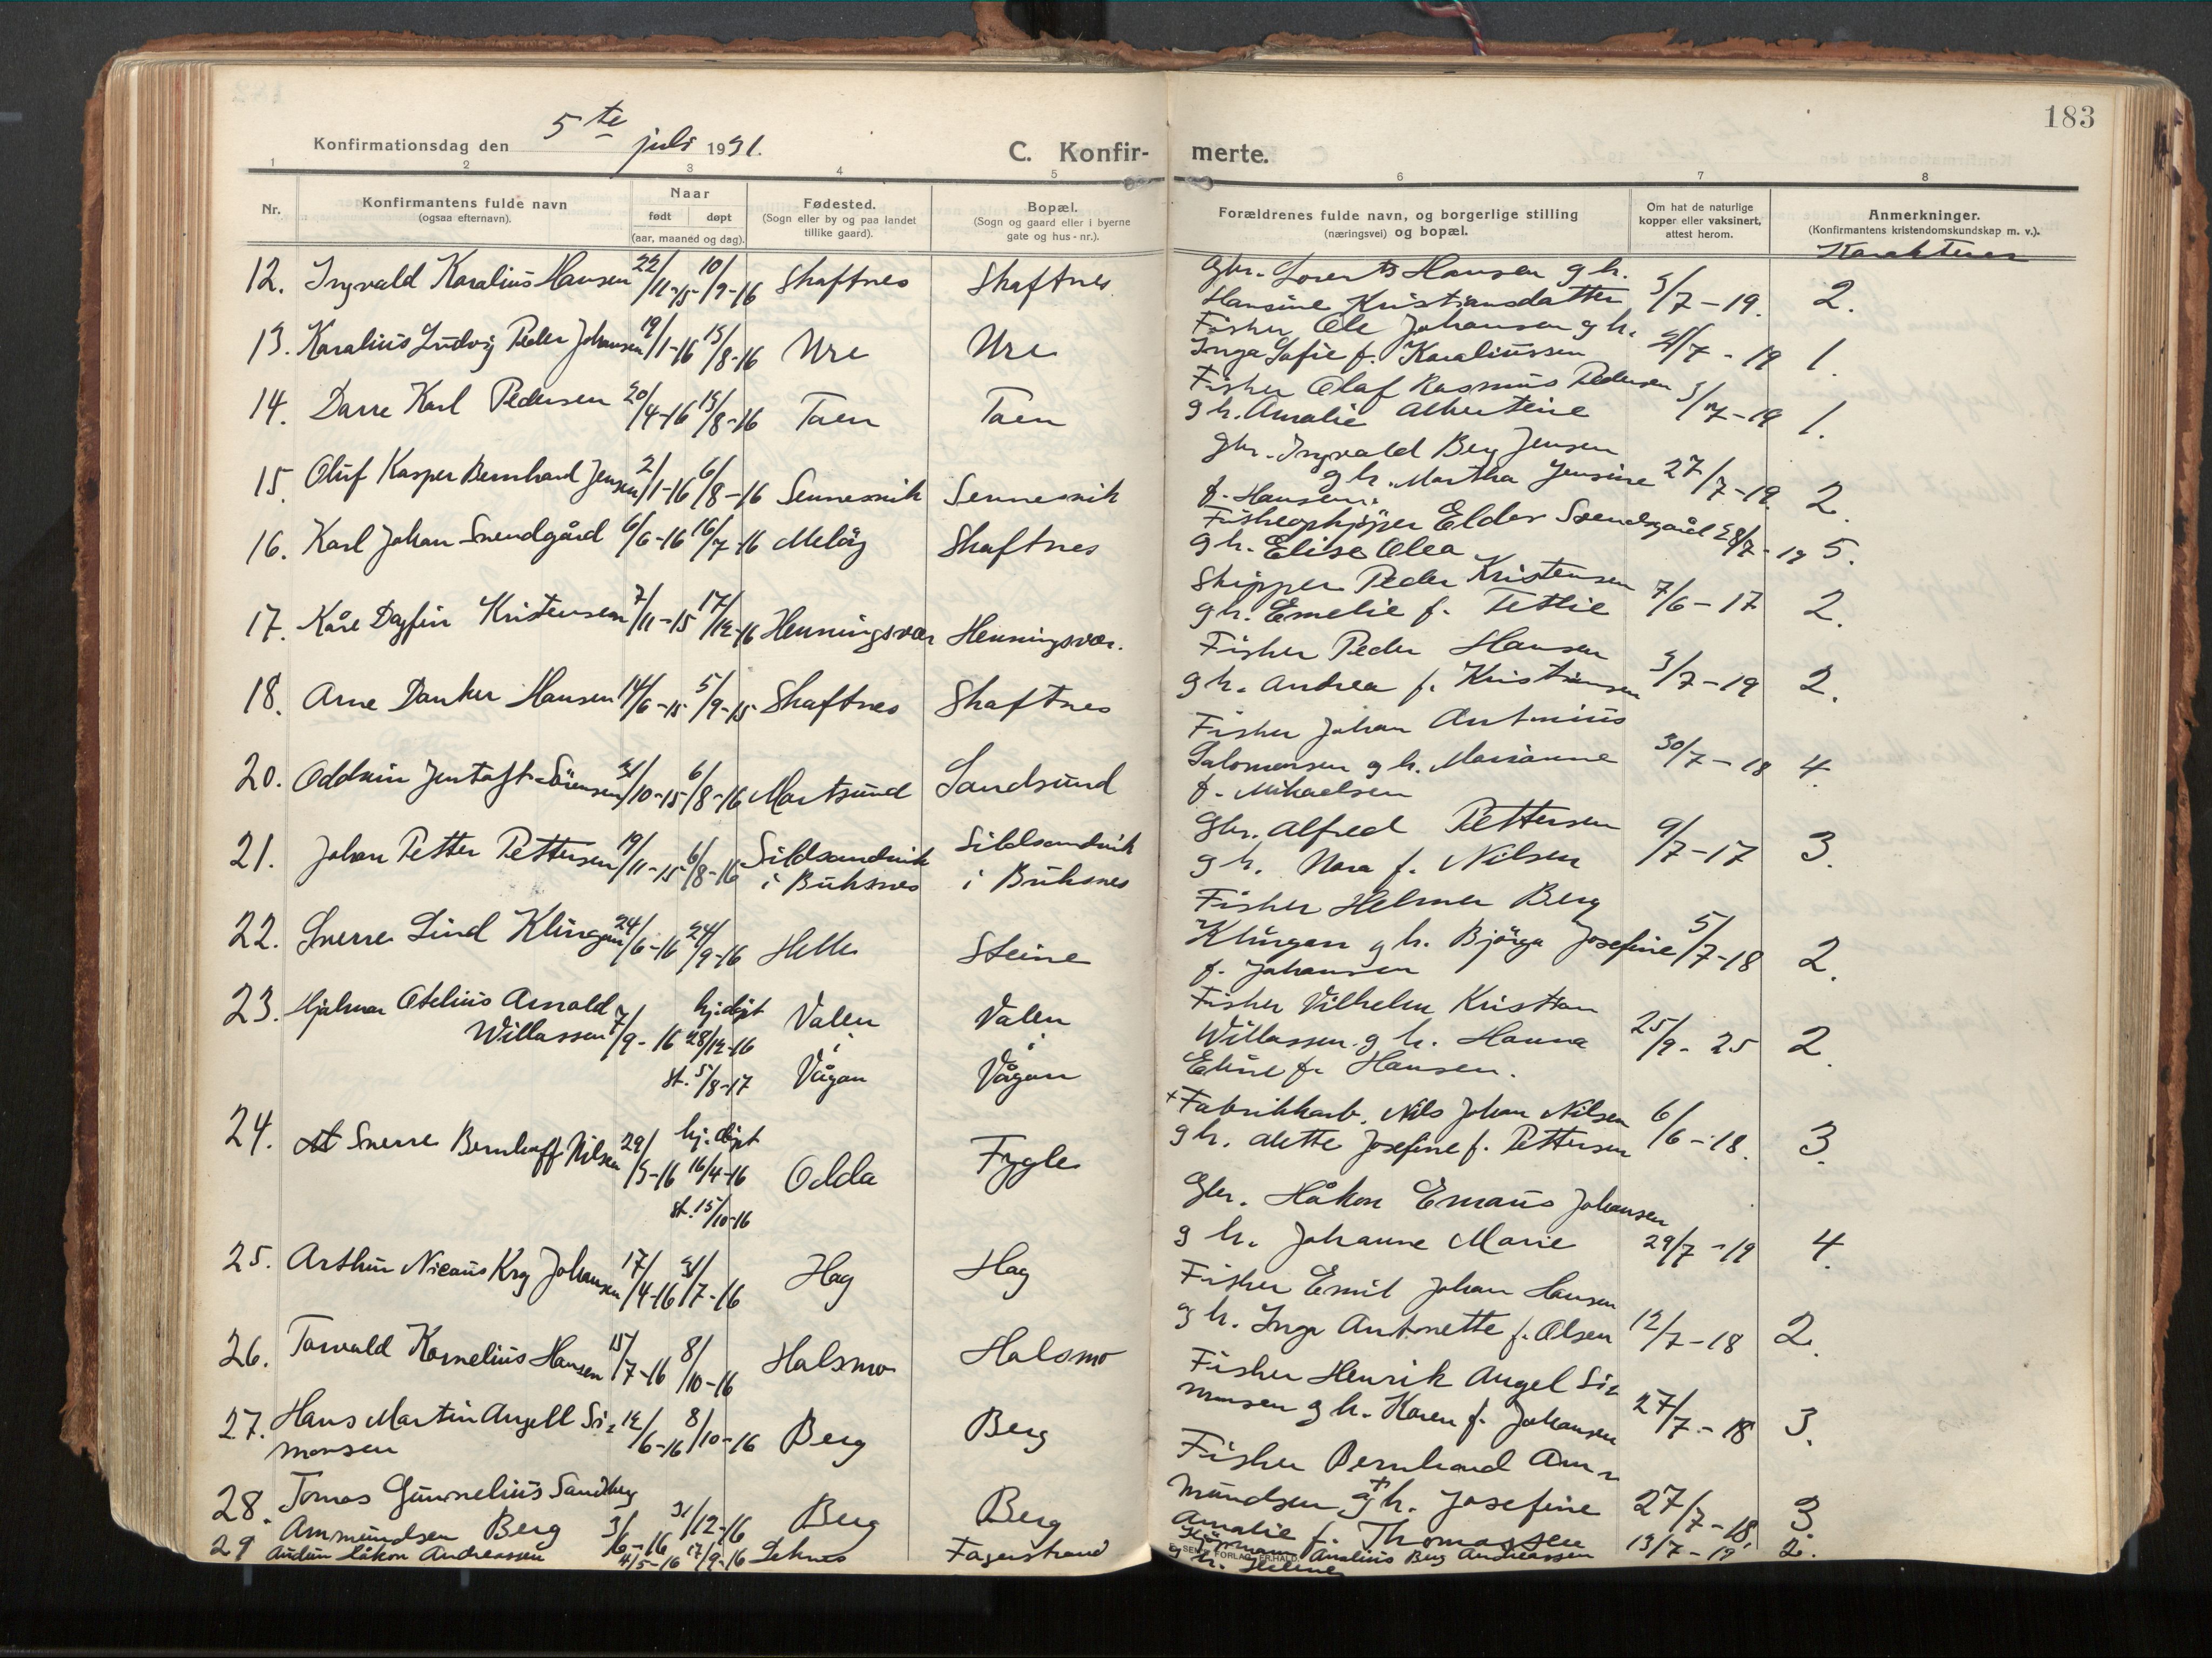 183
Konfirmationsdag den 5te juli 1931.
C. Konfir-merte.
1 2 3 4 5 6 7 8
Nr.
Konfirmantens fulde navn
(ogsaa efternavn).
Naar
født døpt
(aar, maaned og dag).
Fødested.
(Sogn eller by og paa landet
tillike gaard).
Bopæl.
(Sogn og gaard eller i byerne
gate og hus-nr.).
Forældrenes fulde navn, og borgerlige stilling
(næringsvei) og bopæl.
Om hat de naturlige
kopper eller vaksinert,
attest herom.
Anmerkninger.
(Konfirmantens kristendomskundskap m. v.).
Karakterer
12. Ingvald Karalius Hansen 22/11-15 10/9-16 Skaftnes Skaftnes
Gbr. Lorents Hansen g h.
Hansine Kristiansdatter 3/7-19. 2.
13. Karalius Ludvig Peder Johansen 19/1-16 13/8-16 Ure Ure
Fisker Ole Johansen g h.
Inga Sofie f. Karaliussen /7-19 1.
14. Darre Karl Pedersen 20/4-16 13/8-16 Taen Taen
Fisker Olaf Rasmus Pedersen
g h. Amalie Albertine 3/7-19 1.
15. Oluf Kasper Bernhard Jensen 2/1-16 6/8-16 Sennesvik Sennesvik
Gbr. Ingvald Berg Jensen
g h. Martha Jensine 27/7-19. 2.
f. Hansen.
16. Karl Johan Svendgård 6/6-16 16/7-16 Meløy Skaftnes
Fiskeopkjøper Elder Svendsgård 28/7-19 5.
g h. Elise Olea
17. Kåre Dagfin Kristensen 7/11-15 17/12-16 Henningsvær Henningsvær.
Skipper Peder Kristensen
g h. Emelie f. Tettlie 7/6-17 2.
18. Arne Danker Hansen 14/6-15 5/9-15 Skaftnes Skaftnes
Fisker Peder Hansen
g h. Andrea f. Kristiansen 3/7-19 2.
20. Oddvin Jentoft Sörensen 31/10-15 6/8-16 Mortsund Sandsund
Fisker Johan Antonius
Salomonsen g h. Marianne 30/7-18 4.
f. Mikaelsen
21. Johan Petter Pettersen 19/11-15 6/8-16 Sildsandvik Sildsandvik
i Buksnes i Buksnes
Gbr. Alfred Pettersen
g h. Nora f. Nilsen 9/7-17 3.
22. Sverre Lind Klingan 24/6-16 24/9-16 Helle Steine
Fisker Helmer Berg
Klingan g h. Bjørga Josefine 5/7-18 2.
f. Johansen
23. Hjalmar Otelius Arnold hj.døpt Valen Valen
Willassen 7/9-16 28/12-16 i i
st. 5/8-17 Vågan Vågan
Fisker Vilhelm Kristian
Willassen g h. Hanna 25/9-25 2.
Eline f. Hansen.
24. Sverre Bernhoff Nilsen 29/3-16 hj. døpt 16/4-16 Odda Fygle
st. 15/10-16
+Fabrikkarb. Nils Johan Nilsen 6/6-18. 3.
g h. Alette Josefine f. Pettersen
25. Arthur Nicaus Krog Johansen 17/4-16 31/7-16 Hag Hag
Gbr. Håkon Emaus Johansen
g h. Johanne Marie 29/7-19 4.
26. Torvald Kornelius Hansen 15/7-16 8/10-16 Halsmo Halsmo
Fisker Emil Johan Hansen
g h. Inga Antonette f. Olsen 12/7-18 2.
27. Hans Martin Angell Si-
monsen 12/6-16 8/10-16 Berg Berg
Fisker Henrik Angel Si-
monsen g h. Karen f. Johansen 27/7-18 3.
28. Tomas Gunnelius Sandberg
Ammundsen Berg 3/6-16 31/12-16 Berg Berg
Fisker Bernhard Am-
mundsen + g h. Josefine 27/7-18. 3.
Amalie f. Thomassen
29 Audun Håkon Andreassen 4/5-16 17/9-16 Leknes Fagerstrand
Analius Berg Andreassen 13/7-19 2.
g h. Helene